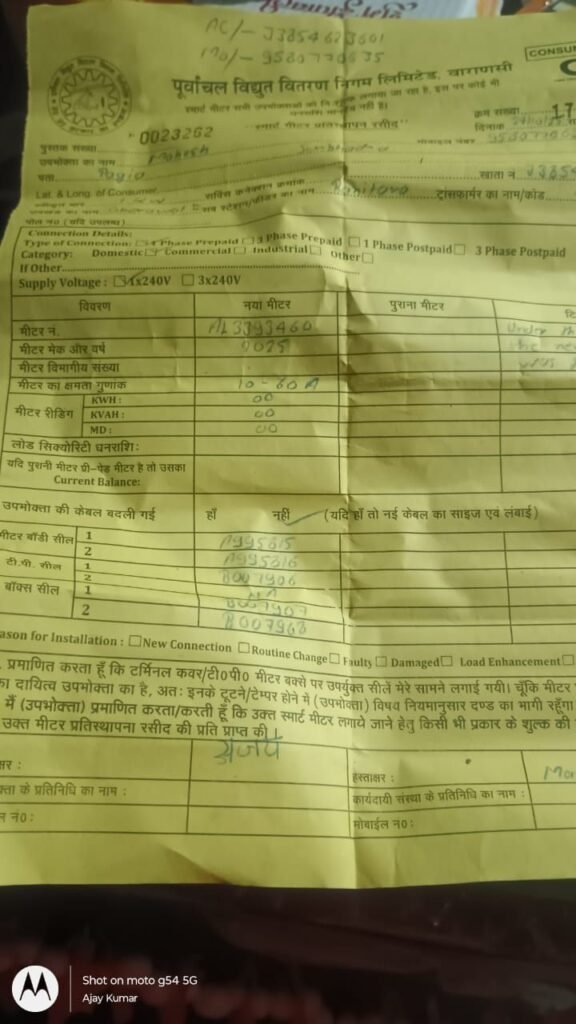 AC/- 33854623601
Mo/- 9580770635
CONSUM
पूर्वांचल विद्युत वितरण निगम लिमिटेड, वाराणसी
स्मार्ट मीटर सभी उपभोक्ताओं को नि शुल्क लगाया जा रहा है, इस पर कोई भी
धनराशि देय नहीं है।
क्रम संख्या 17
"स्मार्ट मीटर प्रतिस्थापन रसीद"
दिनांक
पुस्तक संख्या 0023252
मोबाइल नंबर
उपभोक्ता का नाम Mahesh
पता
खाता नं. 33854
Lat. & Long. of Consumer
सर्विस कनेक्शन क्रमांक
ट्रांसफार्मर का नाम/कोड
सब स्टेशन/फीडर का नाम
पोल न0 (यदि उपलब्ध)
Connection Details:
Type of Connection: 1 Phase Prepaid 3 Phase Prepaid 1 Phase Postpaid 3 Phase Postpaid
Category: Domestic Commercial Industrial Other
If Other
Supply Voltage : 1x240V 3x240V
विवरण नया मीटर पुराना मीटर
मीटर नं. AL3393460 Under th
मीटर मेक और वर्ष 2025 the ne
मीटर विभागीय संख्या
मीटर का क्षमता गुणांक 10-60A
मीटर रीडिंग
KWH : 00
KVAH : 00
MD : 00
लोड सिक्योरिटी धनराशि:
यदि पुरानी मीटर प्री-पेड मीटर है तो उसका
Current Balance:
उपभोक्ता की केबल बदली गई हाँ नहीं (यदि हाँ तो नई केबल का साइज एवं लंबाई)
मीटर बॉडी सील 1 A995815
2 A995816
टी.पी. सील 1 B007906
2 NA
बॉक्स सील 1 B007907
2 B007968
ason for Installation : New Connection Routine Change Faulty Damaged Load Enhancement
प्रमाणित करता हूँ कि टर्मिनल कवर/टी0पी0 मीटर बक्से पर उपर्युक्त सीलें मेरे सामने लगाई गयी। चूँकि मीटर
का दायित्व उपभोक्ता का है, अतः इनके टूटने/टेम्पर होने में (उपभोक्ता) विषय नियमानुसार दण्ड का भागी रहूँगा
में (उपभोक्ता) प्रमाणित करता/करती हूँ कि उक्त स्मार्ट मीटर लगाये जाने हेतु किसी भी प्रकार के शुल्क की
उक्त मीटर प्रतिस्थापना रसीद की प्रति प्राप्त की
अजय
क्षर : हस्ताक्षर :
क्ता के प्रतिनिधि का नाम : कार्यदायी संस्था के प्रतिनिधि का नाम :
ल नं0: मोबाईल न0:
Shot on moto g54 5G
Ajay Kumar